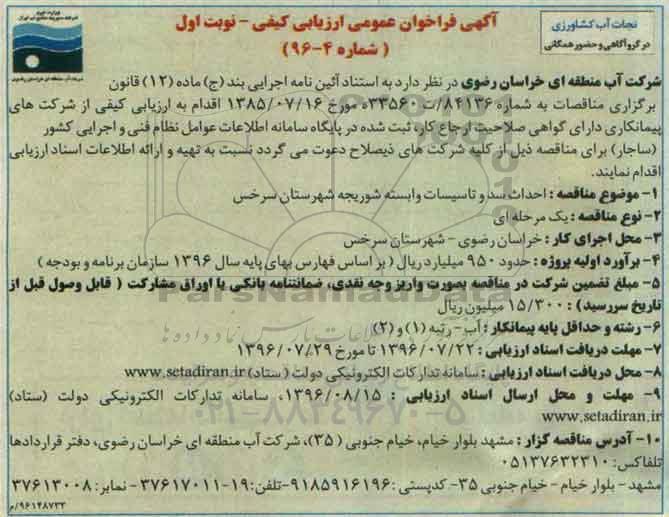 نجات آب کشاورزی
در گرو آگاهی و حضور همگانی
آگهی فراخوان عمومی ارزیابی کیفی - نوبت اول
( شماره ۴-۹۶)
شرکت آب منطقه ای خراسان رضوی در نظر دارد به استناد آئین نامه اجرایی بند (ج) ماده (۱۲) قانون
برگزاری مناقصات به شماره ۸۴۱۳۶/ت ۳۳۵۶۰ه مورخ ۱۳۸۵/۰۷/۱۶ اقدام به ارزیابی کیفی از شرکت های
پیمانکاری دارای گواهی صلاحیت ارجاع کار، ثبت شده در پایگاه سامانه اطلاعات عوامل نظام فنی و اجرایی کشور
(ساجار) برای مناقصه ذیل از کلیه شرکت های ذیصلاح دعوت می گردد نسبت به تهیه و ارائه اطلاعات اسناد ارزیابی
اقدام نمایند.
۱- موضوع مناقصه : احداث سد و تاسیسات وابسته شوریجه شهرستان سرخس
۲- نوع مناقصه : یک مرحله ای
۳- محل اجرای کار : خراسان رضوی - شهرستان سرخس
۴- برآورد اولیه پروژه : حدود ۹۵۰ میلیارد ریال ( بر اساس فهارس بهای پایه سال ۱۳۹۶ سازمان برنامه و بودجه )
۵- مبلغ تضمین شرکت در مناقصه بصورت واریز وجه نقدی، ضمانتنامه بانکی یا اوراق مشارکت ( قابل وصول قبل از
تاریخ سررسید) : ۱۵/۳۰۰ میلیون ریال
۶- رشته و حداقل پایه پیمانکار : آب - رتبه (۱) و (۲)
۷- مهلت دریافت اسناد ارزیابی : ۱۳۹۶/۰۷/۲۲ تا مورخ ۱۳۹۶/۰۷/۲۹
۸- محل دریافت اسناد ارزیابی : سامانه تدارکات الکترونیکی دولت ( ستاد) www.setadiran.ir
۹- مهلت و محل ارسال اسناد ارزیابی : ۱۳۹۶/۰۸/۱۵، سامانه تدارکات الکترونیکی دولت (ستاد)
www.setadiran.ir
۱۰- آدرس مناقصه گزار : مشهد بلوار خیام، خیام جنوبی ( ۳۵)، شرکت آب منطقه ای خراسان رضوی، دفتر قراردادها
تلفاکس: ۰۵۱۳۷۶۳۲۳۱۰
مشهد - بلوار خیام - خیام جنوبی ۳۵- کدپستی : ۹۱۸۵۹۱۶۱۹۶-تلفن: ۱۹-۳۷۶۱۷۰۱۱ - نمابر: ۳۷۶۱۳۰۰۸
۹۶۱۴۸۷۳۳/م
ParsNamadData
۰۲۱-۸۸۳۴۹۶۷۰-۵